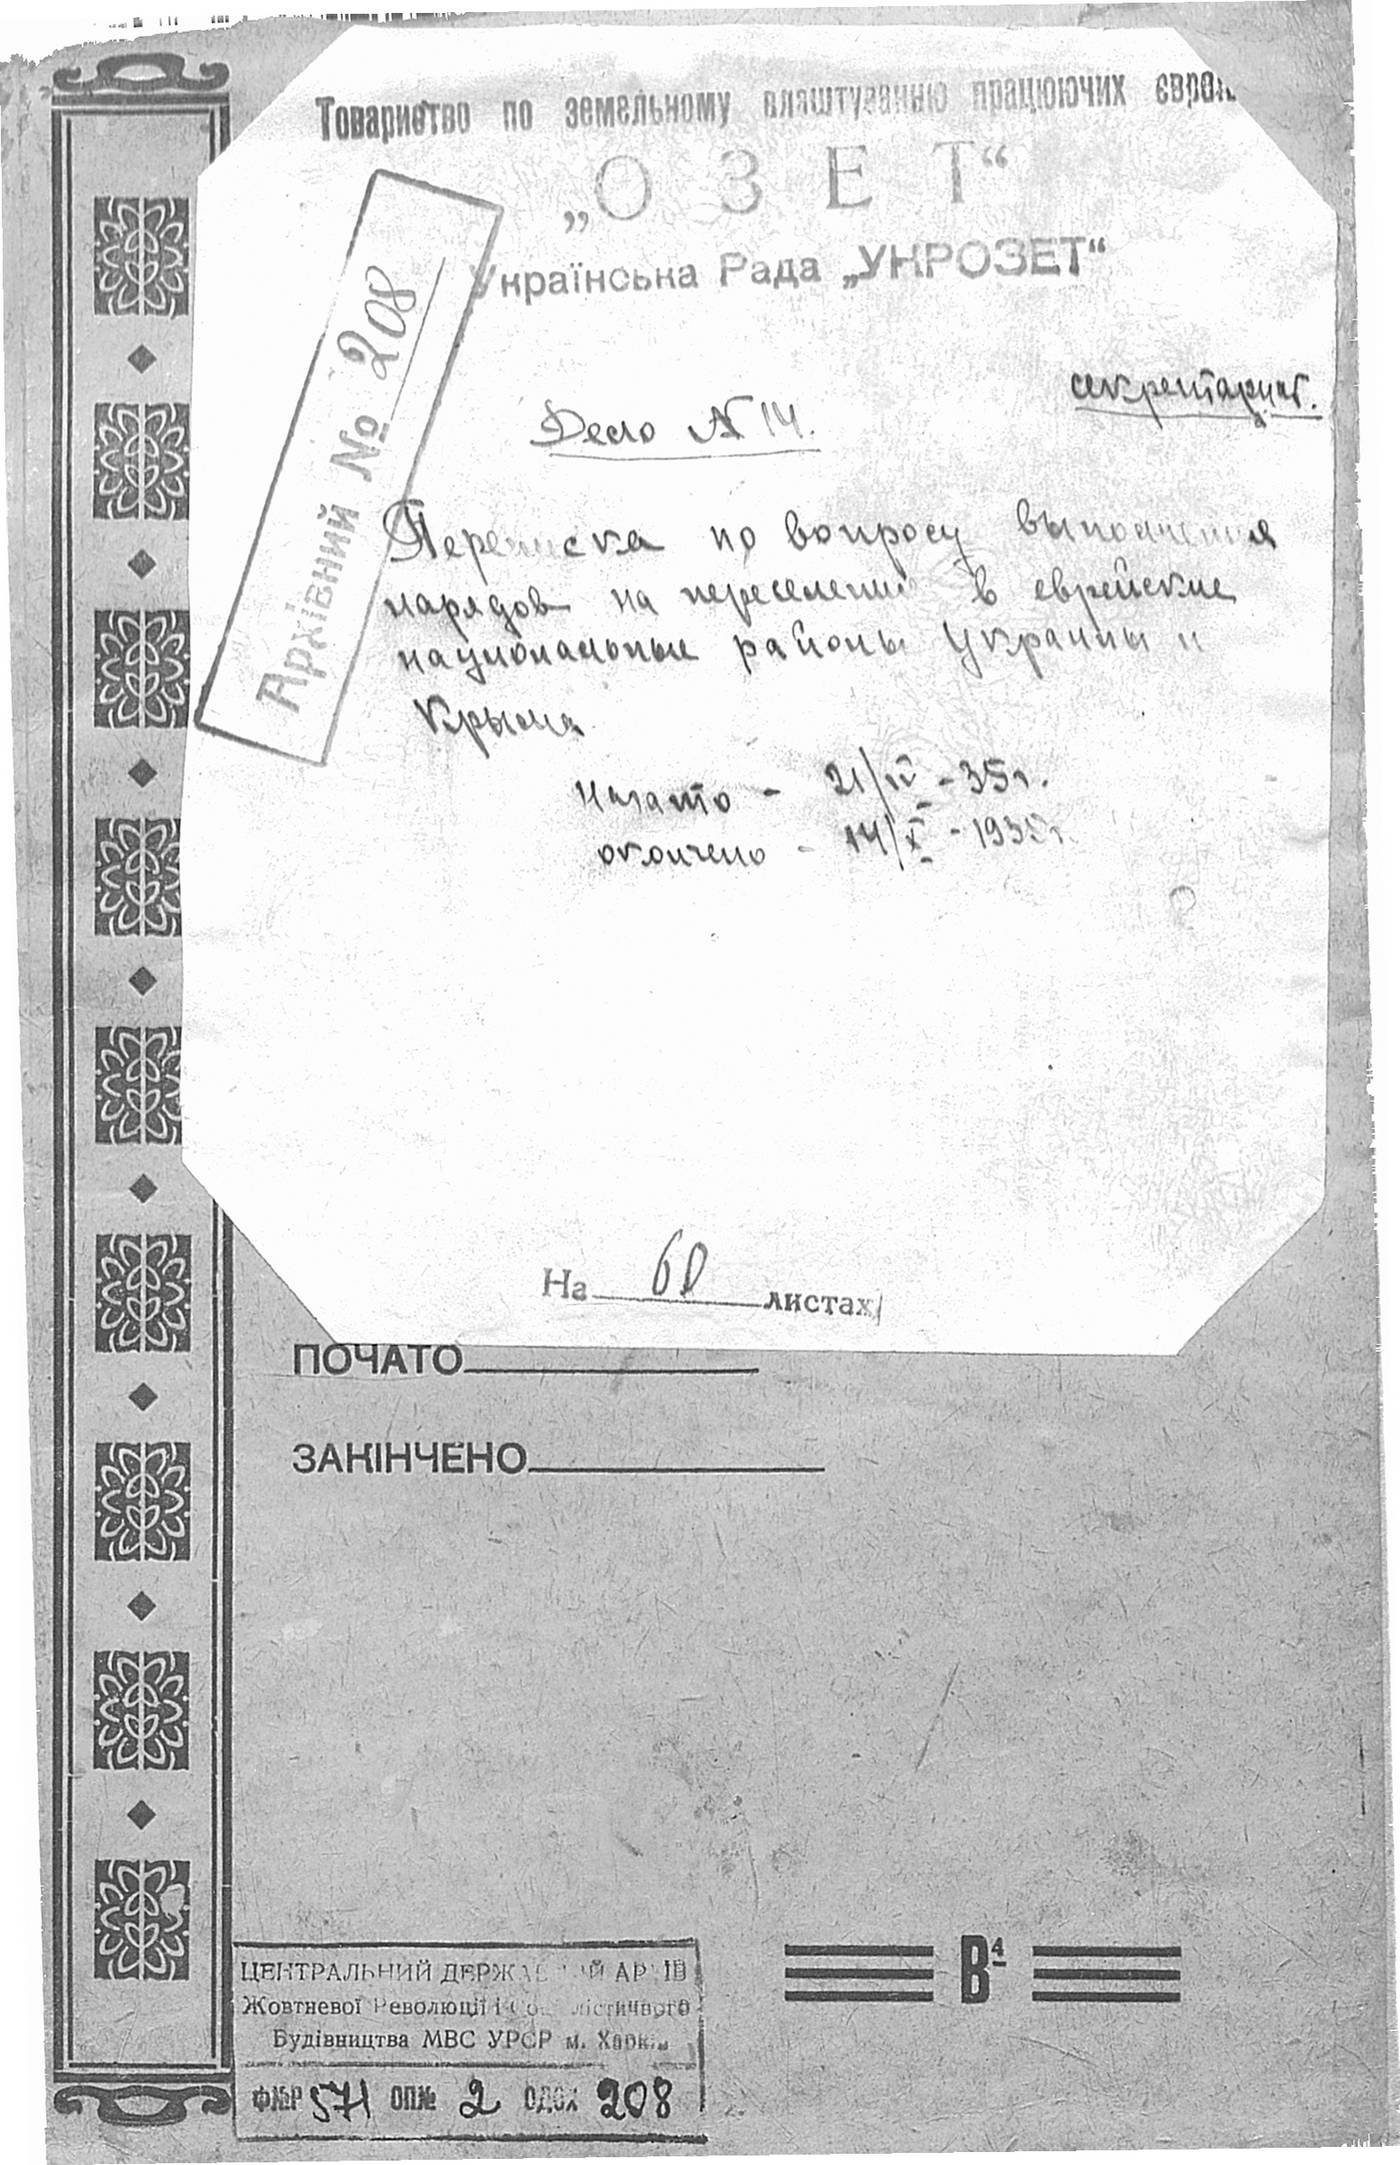 Товариство по земельному влаштуванню працюючих євреїв
„ОЗЕТ“
Українська Рада „УКРОЗЕТ“
Архівний № 208
секретариат.
Дело № 14.
Переписка по вопросу выполнения
нарядов на переселение в еврейские
национальные районы Украины и
Крыма
начато - 21/IV - 35 г.
окончено - 14/X - 1935 г.
На 60 листах
ПОЧАТО
ЗАКІНЧЕНО
В4
ЦЕНТРАЛЬНИЙ ДЕРЖАВНИЙ АРХІВ
Жовтневої Революції і Соціалістичного
Будівництва МВС УРСР м. Харків
Ф№Р 571 ОП№ 2 ОДЗХ 208